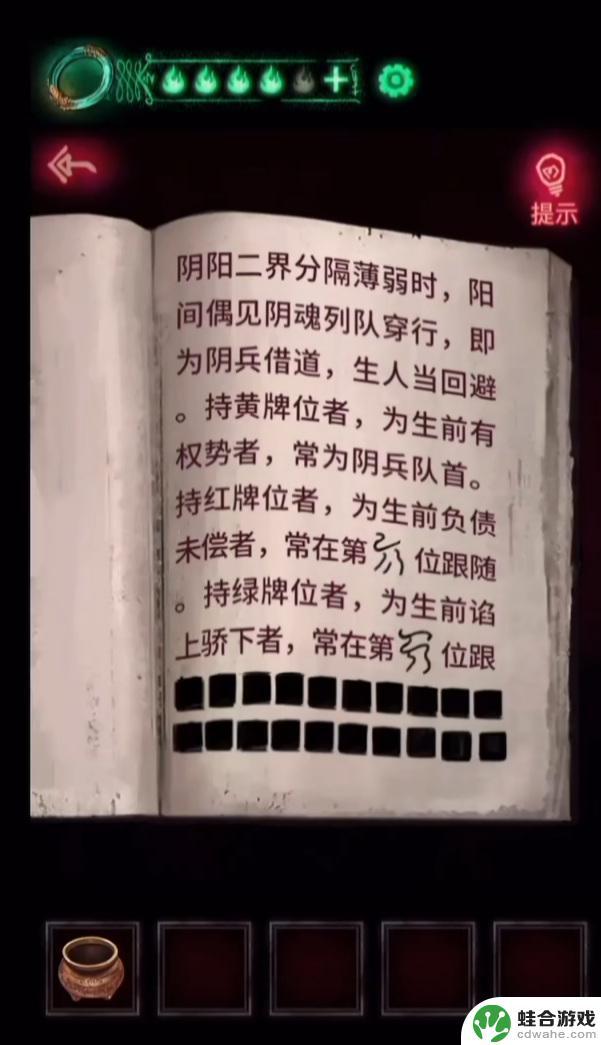 提示
阴阳二界分隔薄弱时，阳
间偶见阴魂列队穿行，即
为阴兵借道，生人当回避
。持黄牌位者，为生前有
权势者，常为阴兵队首。
持红牌位者，为生前负债
未偿者，常在第 位跟随
。持绿牌位者，为生前谄
上骄下者，常在第 位跟
蛙合游戏
cdwahe.com